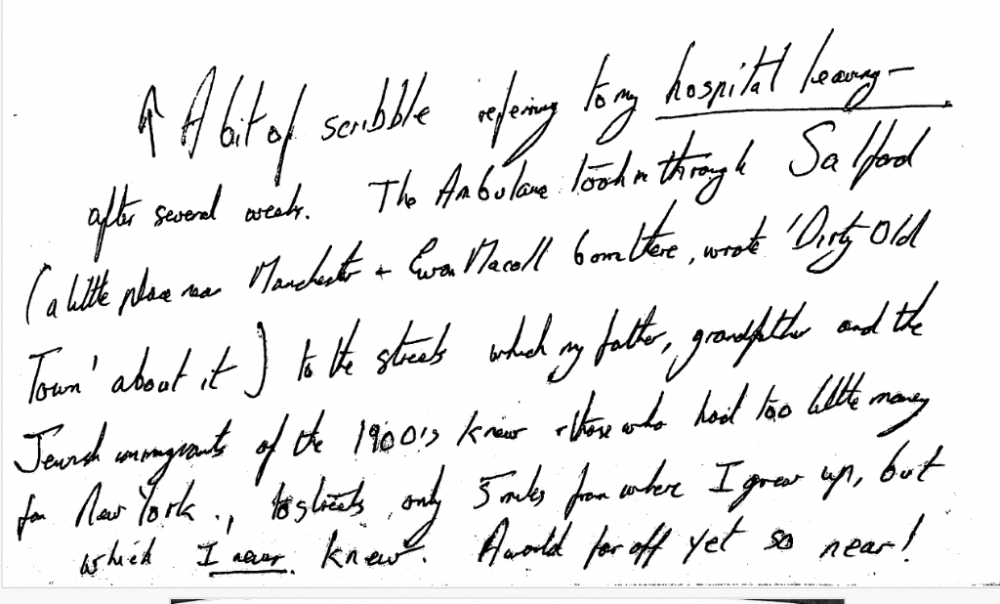 ↑ A bit of scribble refering to my hospital leaving –
after several weeks. The Ambulance took me through Salford
(a little place near Manchester + Ewan Macoll born there, wrote 'Dirty Old
Town' about it) to the streets which my father, grandfather and the
Jewish immigrants of the 1900's knew - those who had too little money
for New York., to streets only 5 miles from where I grew up, but
which I never knew. A world far off yet so near!